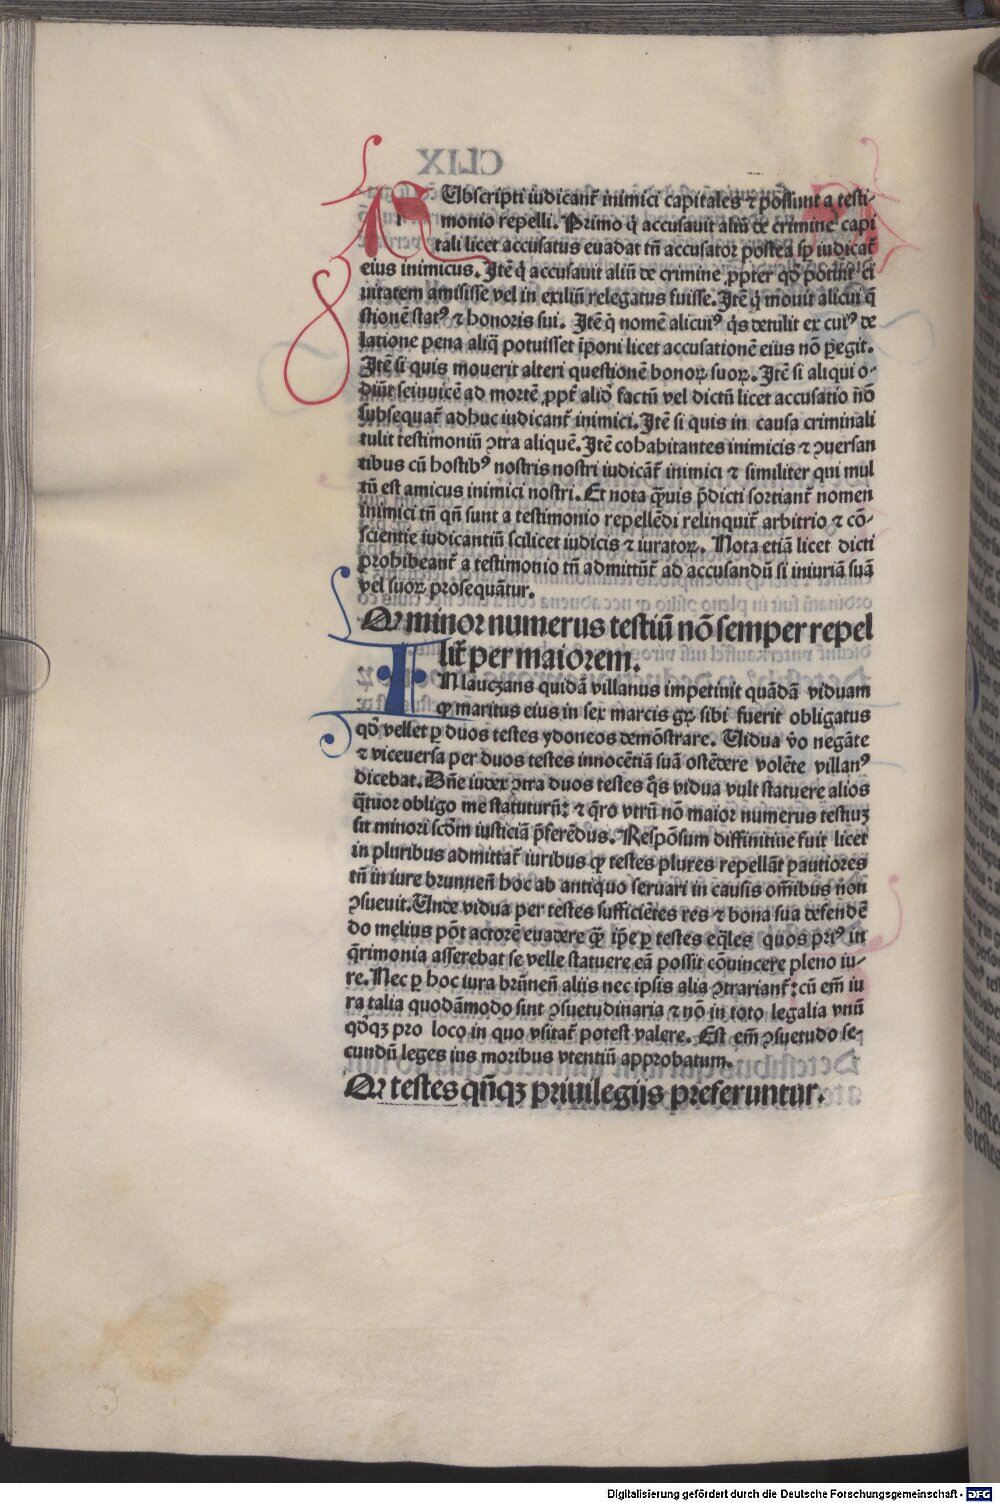 Ubscripti iudicanť inimici capitales ⁊ possunt a testi-
monio repelli. Primo q̇ accusauit aliū de crimine capi
tali licet accusatus euadat tñ accusator postea sp̱ iudicať
eius inimicus. Itē q̇ accusauit aliū de crimine ꝓpter qd̄ potuit ci
uitatem amisisse vel in exiliū relegatus fuisse. Itē q̇ mouit alicui q̄
stionē statꝰ ⁊ honoris sui. Itē q̇ nomē alicuiꝰ q̇s detulit ex cuiꝰ de
latione pena aliq̄ potuisset īponi licet accusationē eius nō ꝑegit.
Itē si quis mouerit alteri questionē bonoꝝ suoꝝ. Itē si aliqui o-
diūt seinuicē ad mortē ꝓpť aliqd̄ factū vel dictū licet accusatio nō
subsequať adhuc iudicanť inimici. Itē si quis in causa criminali
tulit testimoniū ꝯtra aliquē. Itē cohabitantes inimicis ⁊ ꝯuersan
tibus cū hostibꝰ nostris nostri iudicāť inimici ⁊ similiter qui mul
tū est amicus inimici nostri. Et nota q̄uis p̄dicti sortianť nomen
inimici tñ qñ sunt a testimonio repellēdi relinquiť arbitrio ⁊ cō-
scientie iudicantiū scilicet iudicis ⁊ iuratoꝝ. Nota etiā licet dicti
prohibeanť a testimonio tñ admittūť ad accusandū si iniuriā suā
vel suoꝝ prosequātur.
Qꝙ minor numerus testiū nō semper repel
liť per maiorem.
IN lauczans quidā villanus impetiuit quādā viduam
ꝙ maritus eius in sex marcis gꝝ sibi fuerit obligatus
qd̄ vellet ꝑ duos testes ydoneos demōstrare. Uidua v̊o negāte
⁊ viceuersa per duos testes innocētiā suā ostēdere volēte villanꝰ
dicebat. Dn̄e iudex ꝯtra duos testes q̇s vidua vult statuere alios
q̄tuor obligo me statuturū: ⁊ q̄ro vtrū nō maior numerus testiuꝫ
sit minori scd̄m iusticiā p̄ferēdus. Respōsum diffinitiue fuit licet
in pluribus admittať iuribus ꝙ testes plures repellāt pautiores
tñ in iure brunneñ hoc ab antiquo seruari in causis om̄ibus non
ꝯsueuit. Unde vidua per testes sufficiētes res ⁊ bona sua defendē
do melius pōt actorē euadere q̄ ip̄e ꝑ testes eq̄les quos priꝰ in
q̄rimonia asserebat se velle statuere eā possit cōuincere pleno iu-
re. Nec ꝑ hoc iura brūneñ aliis nec ipsis alia ꝯtrarianť: cū em̄ iu
ra talia quodāmodo sint ꝯsuetudinaria ⁊ nō in toto legalia vnū
qd̄qꝫ pro loco in quo vsitať potest valere. Est em̄ ꝯsuetudo se-
cundū leges ius moribus vtentiū approbatum.
Qꝙ testes qn̄qꝫ priuilegijs preferuntur.
Digitalisierung gefördert durch die Deutsche Forschungsgemeinschaft - DFG